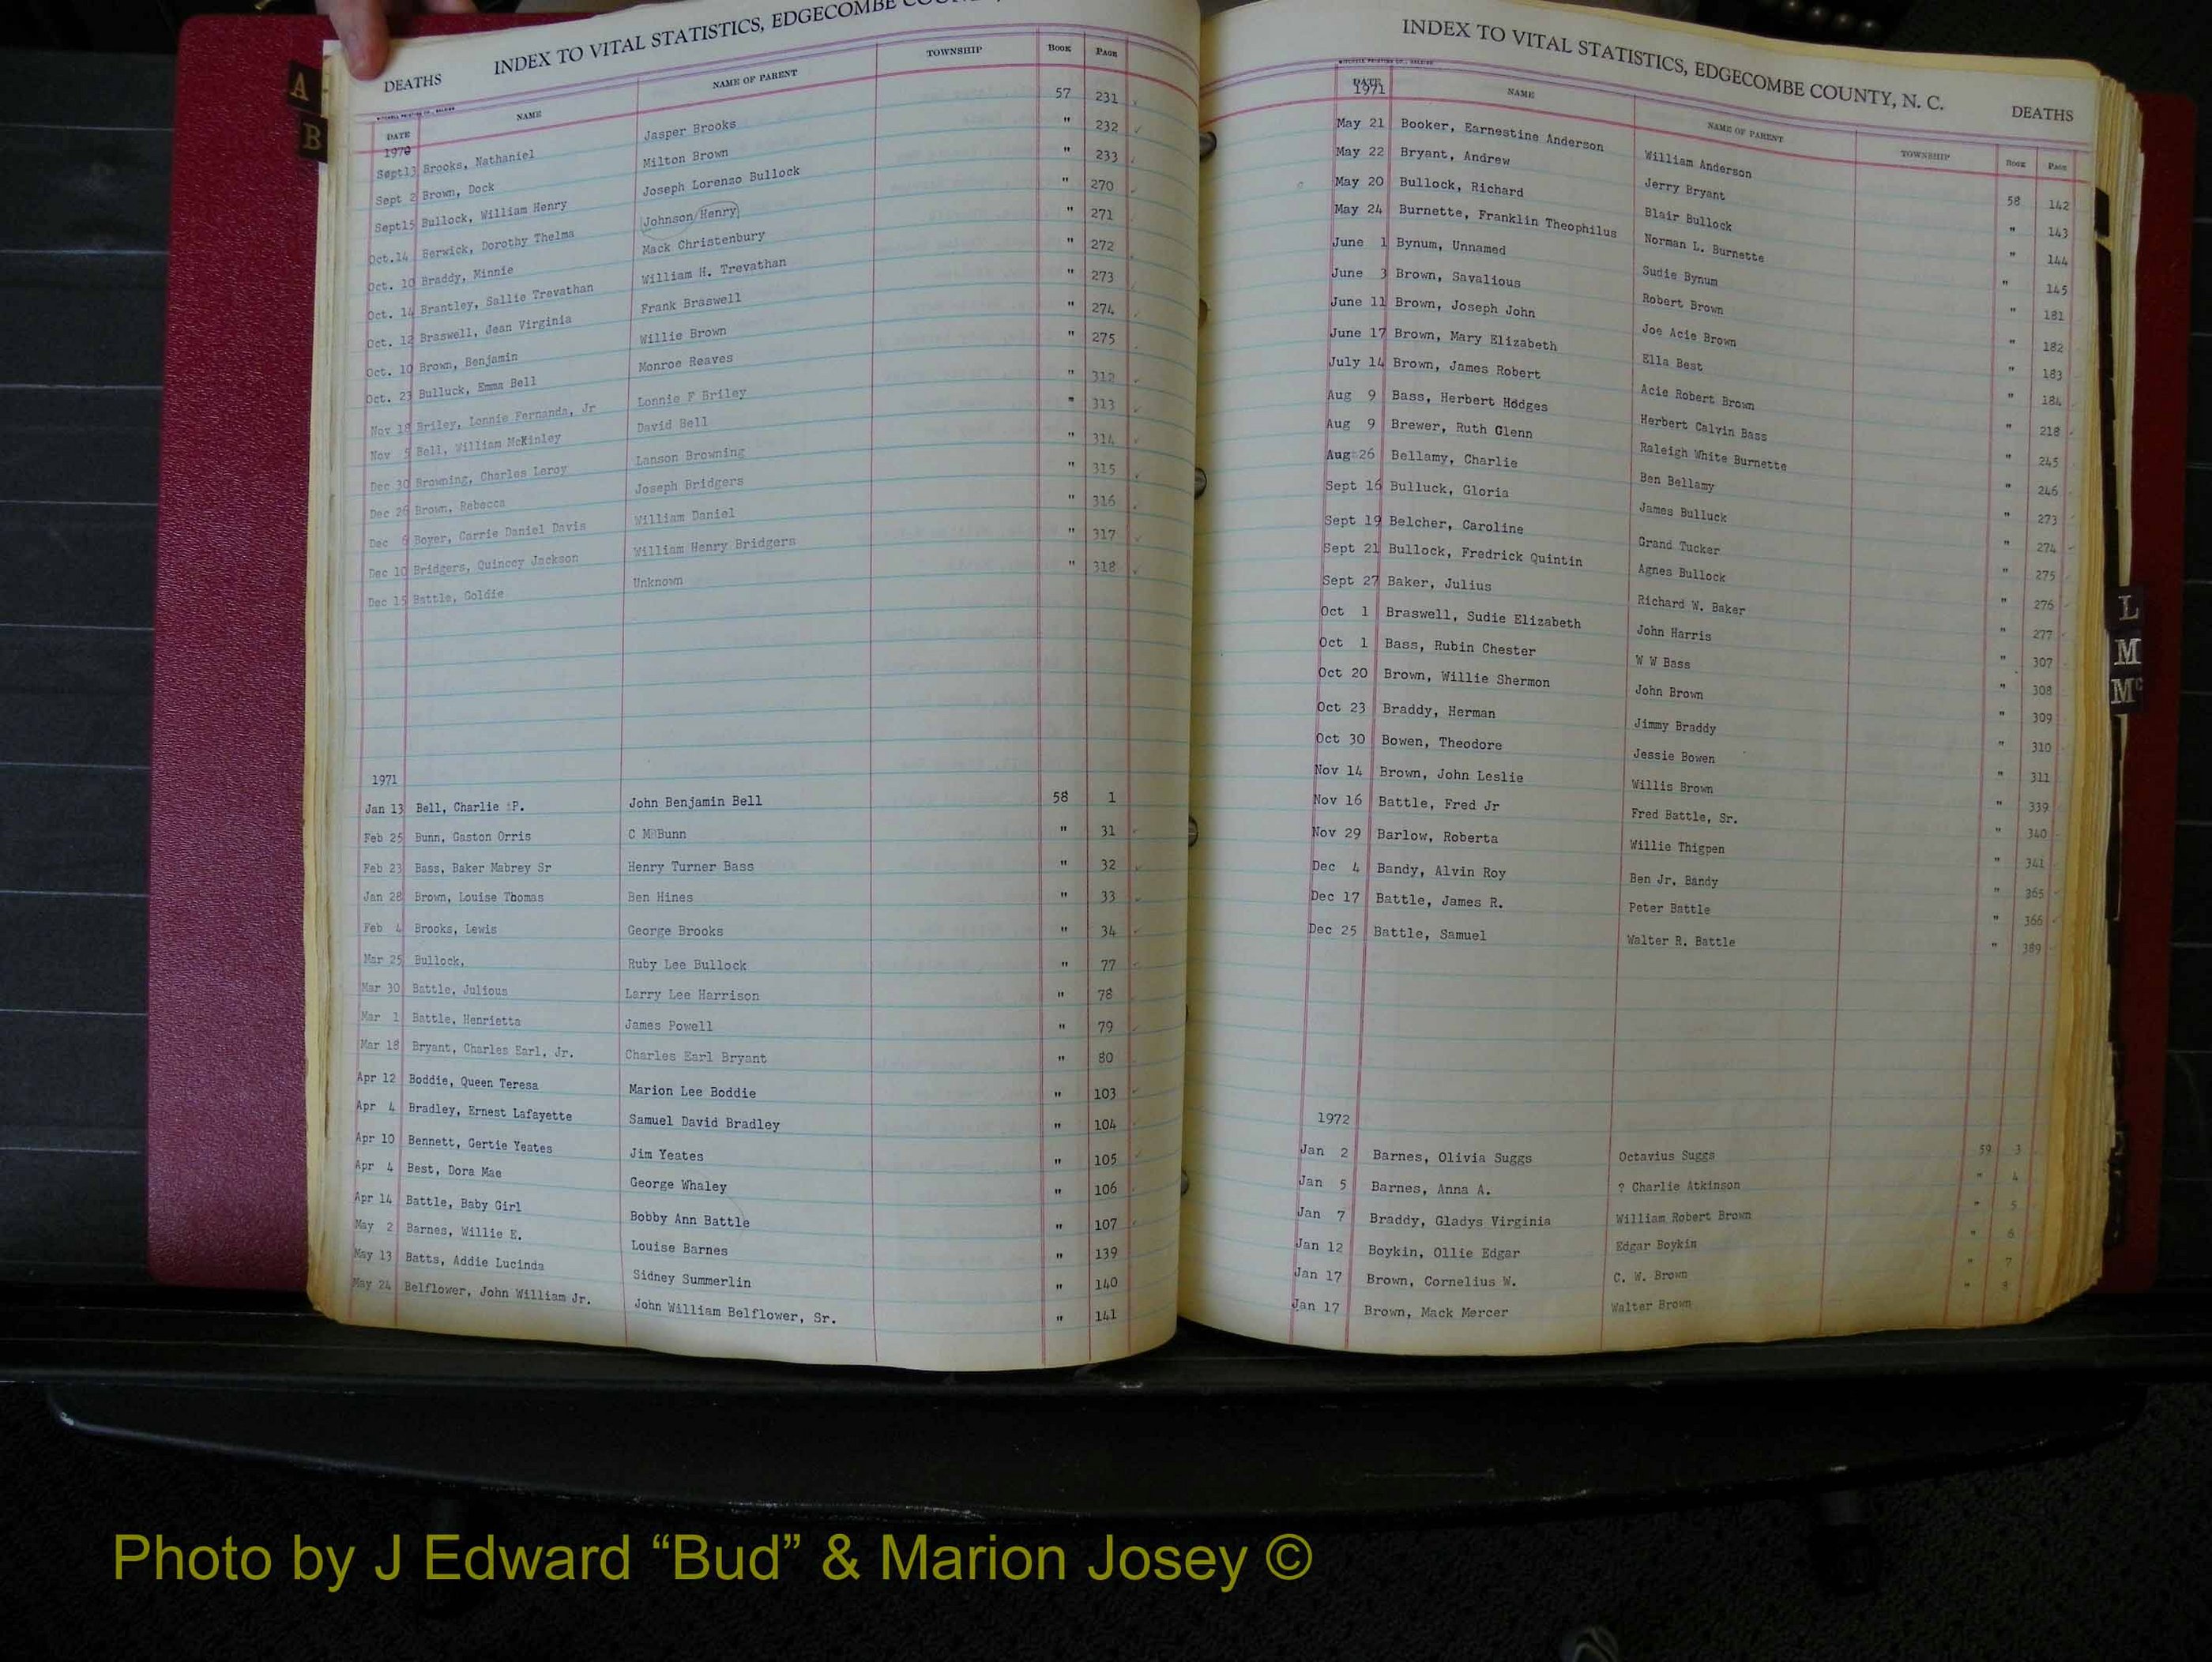 A
B
DEATHS INDEX TO VITAL STATISTICS, EDGECOMBE
DATE NAME NAME OF PARENT TOWNSHIP BOOK PAGE
1970
Sept13 Brooks, Nathaniel Jasper Brooks 57 231
Sept 2 Brown, Dock Milton Brown " 232
Sept15 Bullock, William Henry Joseph Lorenzo Bullock " 233
Oct.14 Berwick, Dorothy Thelma Johnson Henry " 270
Oct. 10 Braddy, Minnie Mack Christenbury " 271
Oct. 14 Brantley, Sallie Trevathan William H. Trevathan " 272
Oct. 12 Braswell, Jean Virginia Frank Braswell " 273
Oct. 10 Brown, Benjamin Willie Brown " 274
Oct. 23 Bulluck, Emma Bell Monroe Reaves " 275
Nov 18 Briley, Lonnie Fernando, Jr Lonnie F Briley " 312
Nov 5 Bell, William McKinley David Bell " 313
Dec 30 Browning, Charles Leroy Lanson Browning " 314
Dec 26 Brown, Rebecca Joseph Bridgers " 315
Dec 6 Boyer, Carrie Daniel Davis William Daniel " 316
Dec 10 Bridgers, Quincey Jackson William Henry Bridgers " 317
Dec 15 Battle, Goldie Unknown " 318
1971
Jan 13 Bell, Charlie P. John Benjamin Bell 58 1
Feb 25 Bunn, Gaston Orris C M Bunn " 31
Feb 23 Bass, Baker Mabrey Sr Henry Turner Bass " 32
Jan 28 Brown, Louise Thomas Ben Hines " 33
Feb 4 Brooks, Lewis George Brooks " 34
Mar 25 Bullock, Ruby Lee Bullock " 77
Mar 30 Battle, Julious Larry Lee Harrison " 78
Mar 1 Battle, Henrietta James Powell " 79
Mar 18 Bryant, Charles Earl, Jr. Charles Earl Bryant " 80
Apr 12 Boddie, Queen Teresa Marion Lee Boddie " 103
Apr 4 Bradley, Ernest Lafayette Samuel David Bradley " 104
Apr 10 Bennett, Gertie Yeates Jim Yeates " 105
Apr 4 Best, Dora Mae George Whaley " 106
Apr 14 Battle, Baby Girl Bobby Ann Battle " 107
May 2 Barnes, Willie E. Louise Barnes " 139
May 13 Batts, Addie Lucinda Sidney Summerlin " 140
May 24 Belflower, John William Jr. John William Belflower, Sr. " 141
INDEX TO VITAL STATISTICS, EDGECOMBE COUNTY, N. C. DEATHS
DATE NAME NAME OF PARENT TOWNSHIP BOOK PAGE
1971
May 21 Booker, Earnestine Anderson William Anderson 58 142
May 22 Bryant, Andrew Jerry Bryant " 143
May 20 Bullock, Richard Blair Bullock " 144
May 24 Burnette, Franklin Theophilus Norman L. Burnette " 145
June 1 Bynum, Unnamed Sudie Bynum " 181
June 3 Brown, Savalious Robert Brown " 182
June 11 Brown, Joseph John Joe Acie Brown " 183
June 17 Brown, Mary Elizabeth Ella Best " 184
July 14 Brown, James Robert Acie Robert Brown " 218
Aug 9 Bass, Herbert Hodges Herbert Calvin Bass " 245
Aug 9 Brewer, Ruth Glenn Raleigh White Burnette " 246
Aug 26 Bellamy, Charlie Ben Bellamy " 273
Sept 16 Bulluck, Gloria James Bulluck " 274
Sept 19 Belcher, Caroline Grand Tucker " 275
Sept 21 Bullock, Fredrick Quintin Agnes Bullock " 276
Sept 27 Baker, Julius Richard W. Baker " 277
Oct 1 Braswell, Sudie Elizabeth John Harris " 307
Oct 1 Bass, Rubin Chester W W Bass " 308
Oct 20 Brown, Willie Shermon John Brown " 309
Oct 23 Braddy, Herman Jimmy Braddy " 310
Oct 30 Bowen, Theodore Jessie Bowen " 311
Nov 14 Brown, John Leslie Willis Brown " 339
Nov 16 Battle, Fred Jr Fred Battle, Sr. " 340
Nov 29 Barlow, Roberta Willie Thigpen " 341
Dec 4 Bandy, Alvin Roy Ben Jr. Bandy " 365
Dec 17 Battle, James R. Peter Battle " 366
Dec 25 Battle, Samuel Walter R. Battle " 389
1972
Jan 2 Barnes, Olivia Suggs Octavius Suggs 59 3
Jan 5 Barnes, Anna A. ? Charlie Atkinson " 4
Jan 7 Braddy, Gladys Virginia William Robert Brown " 5
Jan 12 Boykin, Ollie Edgar Edgar Boykin " 6
Jan 17 Brown, Cornelius W. C. W. Brown " 7
Jan 17 Brown, Mack Mercer Walter Brown " 8
L
M
Mc
Photo by J Edward “Bud” & Marion Josey ©